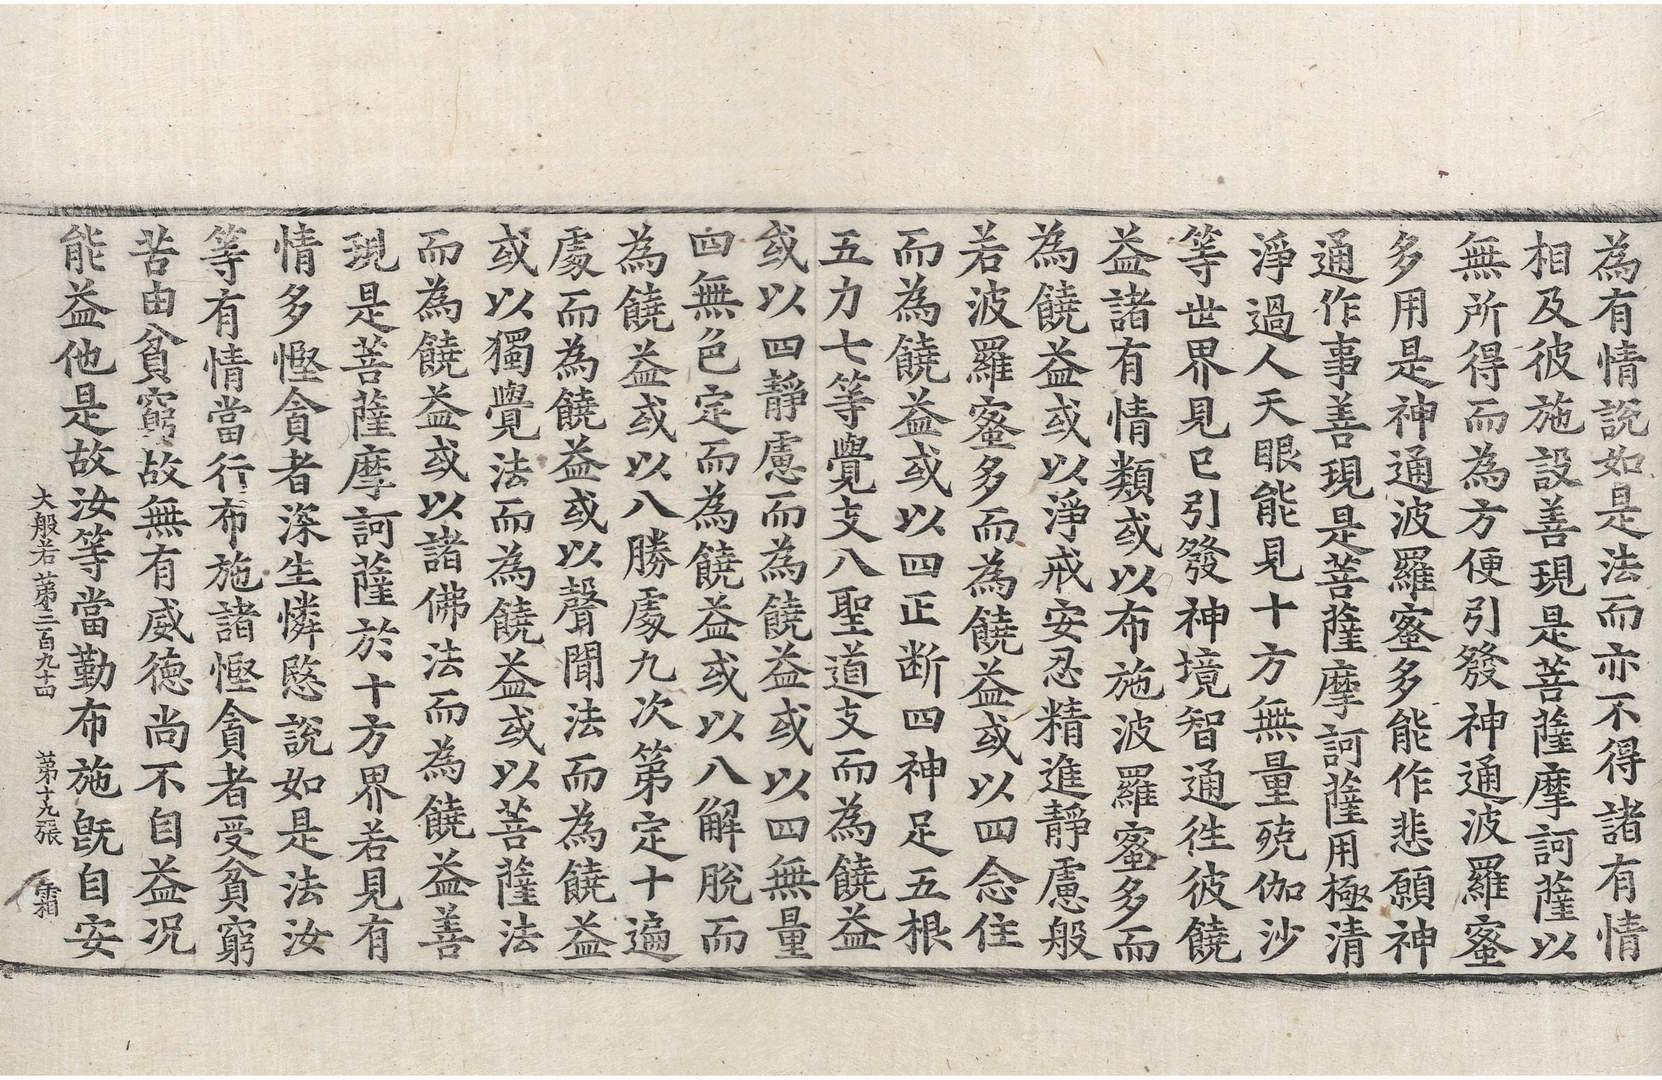 為有情說如是法而亦不得諸有情
相及彼施設善現是菩薩摩訶薩以
無所得而為方便引發神通波羅蜜
多用是神通波羅蜜多能作悲願神
通作事善現是菩薩摩訶薩用極清
淨過人天眼能見十方無量殑伽沙
等世界見已引發神境智通往彼饒
益諸有情類或以布施波羅蜜多而
為饒益或以淨戒安忍精進靜慮般
若波羅蜜多而為饒益或以四念住
而為饒益或以四正断四神足五根
五力七等覺支八聖道支而為饒益
或以四靜慮而為饒益或以四無量
四無色定而為饒益或以八解脫而
為饒益或以八勝處九次第定十遍
處而為饒益或以聲聞法而為饒益
或以獨覺法而為饒益或以菩薩法
而為饒益或以諸佛法而為饒益善
現是菩薩摩訶薩於十方界若見有
情多慳貪者深生憐愍說如是法汝
等有情當行布施諸慳貪者受貧窮
苦由貧窮故無有威德尚不自益况
能益他是故汝等當勤布施旣自安
大般若第三百九十四 第十九張 霜